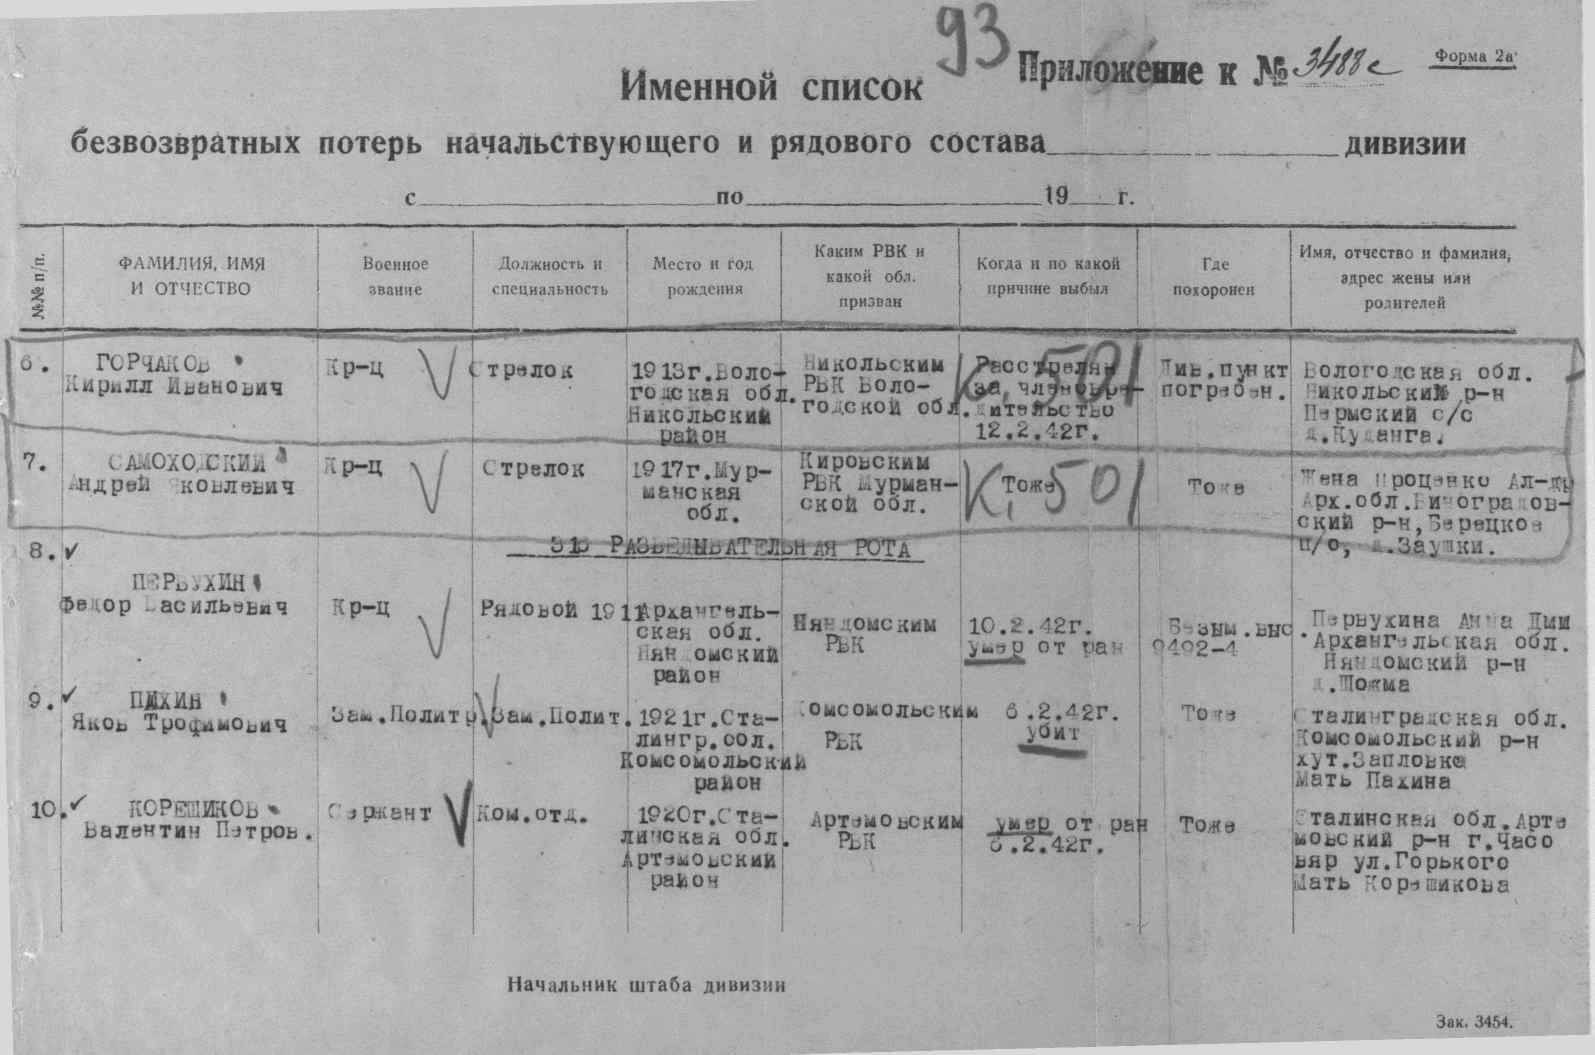 93
Приложение к № 3488с
Форма 2а
Именной список
безвозвратных потерь начальствующего и рядового состава дивизии
с по 19 г.
№№ п/п.
ФАМИЛИЯ, ИМЯ
И ОТЧЕСТВО
Военное
звание
Должность и
специальность
Место и год
рождения
Каким РВК и
какой обл.
призван
Когда и по какой
причине выбыл
Где
похоронен
Имя, отчество и фамилия,
адрес жены или
родителей
6.
ГОРЧАКОВ
Кирилл Иванович
Кр-ц
Стрелок
1913г.Воло-
годская обл.
Никольский
район
Никольским
РВК Воло-
годской обл.
Расстрелян
за членовре-
дительство
12.2.42г.
К, 501
Див.пункт
погребен.
Вологодская обл.
Никольский р-н
Пермский с/с
д.Куданга.
7.
САМОХОДСКИЙ
Андрей Яковлевич
Кр-ц
Стрелок
1917г.Мур-
манская
обл.
Кировским
РВК Мурман-
ской обл.
Тоже
К, 501
Тоже
Жена Проценко Ал-др
Арх.обл.Виноградов-
ский р-н,Берецкое
п/о, д.Заушки.
8.
РАЗВЕДЫВАТЕЛЬНАЯ РОТА
ПЕРВУХИН
Федор Васильевич
Кр-ц
Рядовой
1911
Архангель-
ская обл.
Няндомский
район
Няндомским
РВК
10.2.42г.
умер от ран
Безым.выс.
9492-4
Первухина Анна Дми
Архангельская обл.
Няндомский р-н
д.Шожма
9.
ПАХИН
Яков Трофимович
Зам.Политр.
Зам.Полит.
1921г.Ста-
лингр.обл.
Комсомольский
район
Комсомольским
РВК
6.2.42г.
убит
Тоже
Сталинградская обл.
Комсомольский р-н
хут.Запловка
Мать Пахина
10.
КОРЕШИКОВ
Валентин Петров.
Сержант
Ком.отд.
1920г.Ста-
линская обл.
Артемовский
район
Артемовским
РВК
умер от ран
6.2.42г.
Тоже
Сталинская обл.Арте
мовский р-н г.Часо
вяр ул.Горького
Мать Корешикова
Начальник штаба дивизии
Зак. 3454.